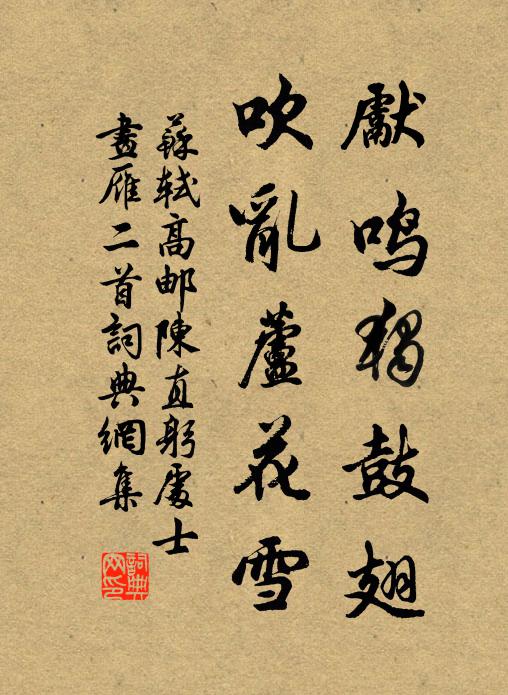 獻鳴獨鼓翅
吹亂蘆花雪
蘇軾高邮陳直躬處士
畫雁二首詞典網集
詞典
网印